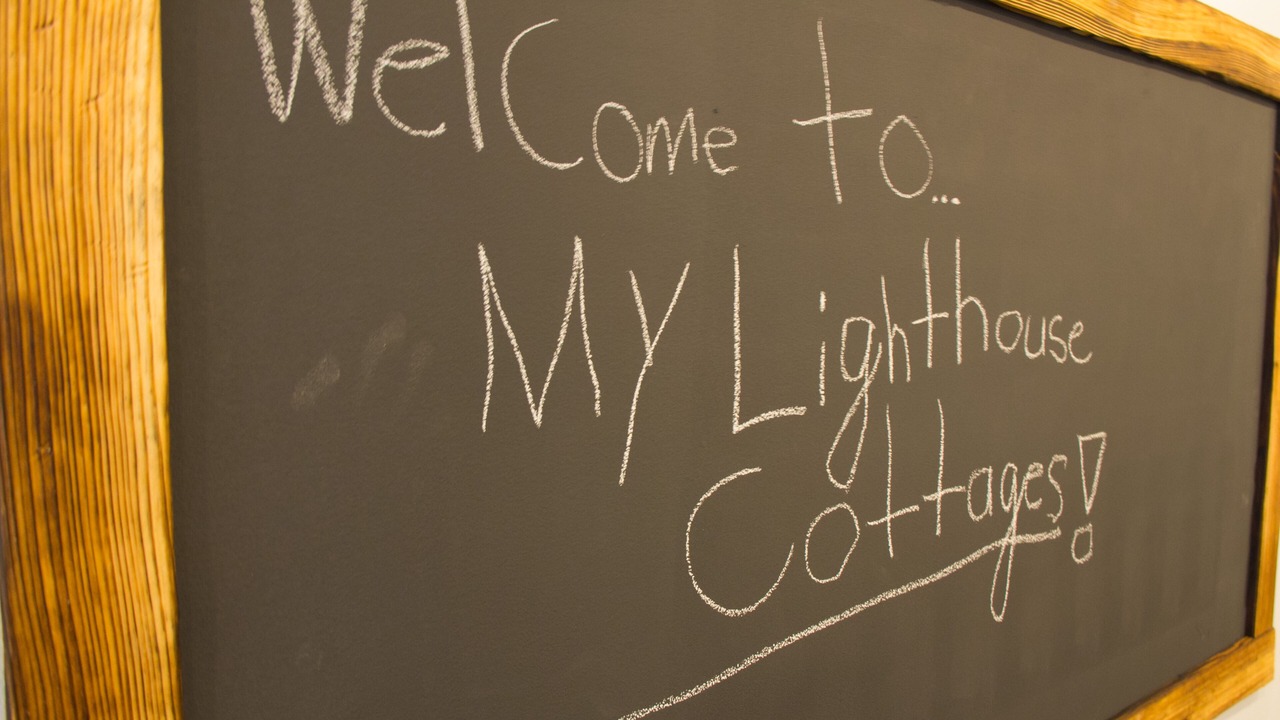 WelCome to...
My Lighthouse
Cottages!